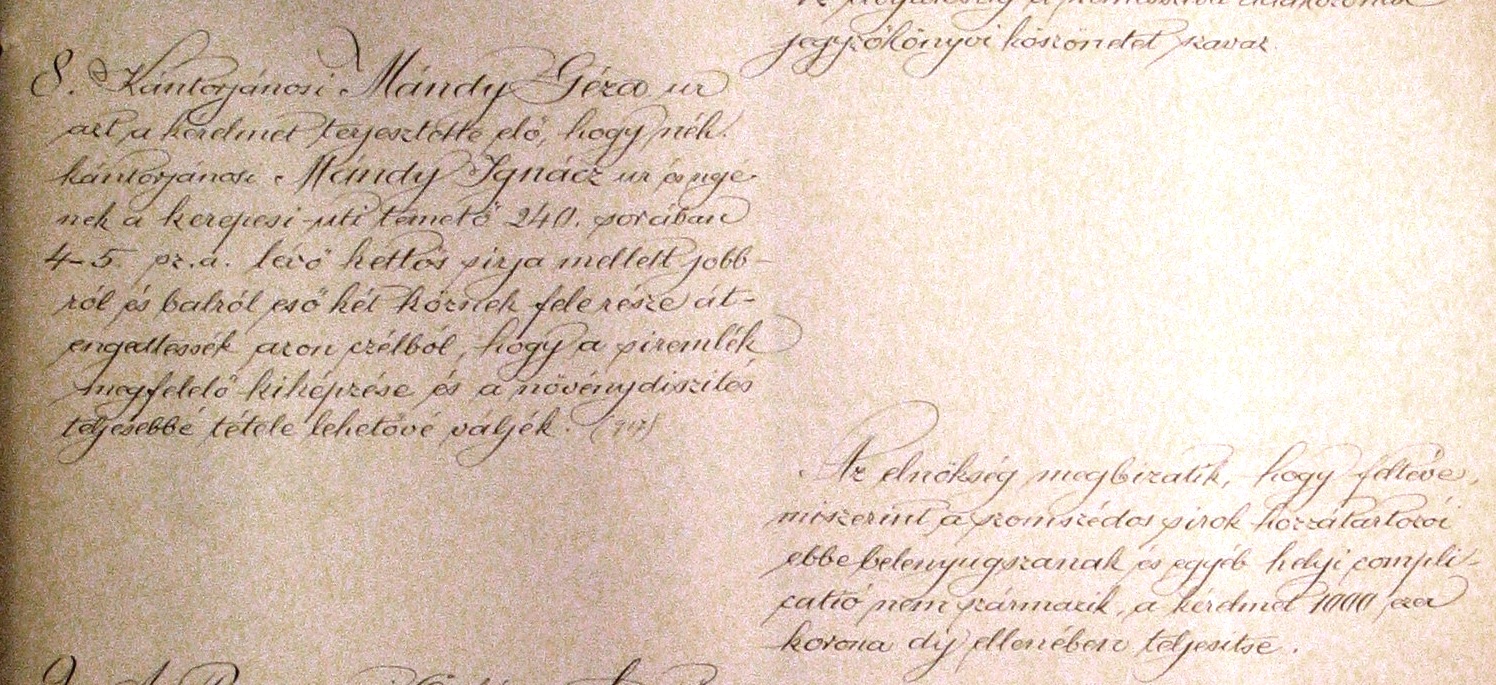 jegyzőkönyvi köszönetet szavaz.
8. Kántorjánosi Mándy Géza ur
azt a kérelmet terjesztette elő, hogy néh.
kántorjánosi Mándy Ignácz ur és nejé-
nek a kerepesi-uti temető 240. sorában
4-5. sz.a. lévő kettős sirja mellett jobb-
ról és balról eső két köznek fele része át-
engedtessék azon czélból, hogy a siremlék
megfelelő kiképzése és a növénydiszités
teljesebbé tétele lehetővé váljék. (917)
Az elnökség megbizatik, hogy feltéve,
miszerint a szomszédos sirok hozzátartozói
ebbe belenyugszanak és egyéb helyi compli-
catió nem származik, a kérelmet 1000 ezer
korona díj ellenében teljesitse.